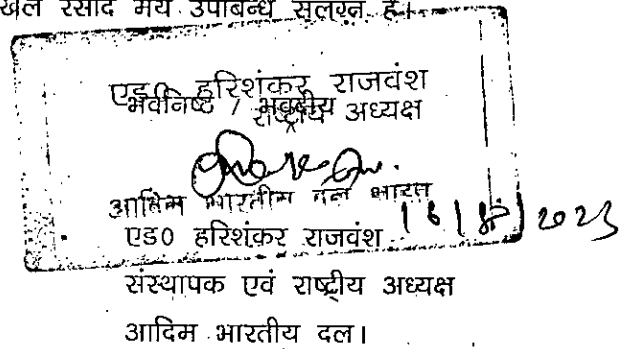 रसीद मय उपाबन्ध संलग्न है।
एड0 हरिशंकर राजवंश
भवनिष्ठ / भवदीय
राष्ट्रीय अध्यक्ष
आदिम भारतीय दल भारत
एड0 हरिशंकर राजवंश 16 2023
संस्थापक एवं राष्ट्रीय अध्यक्ष
आदिम भारतीय दल।